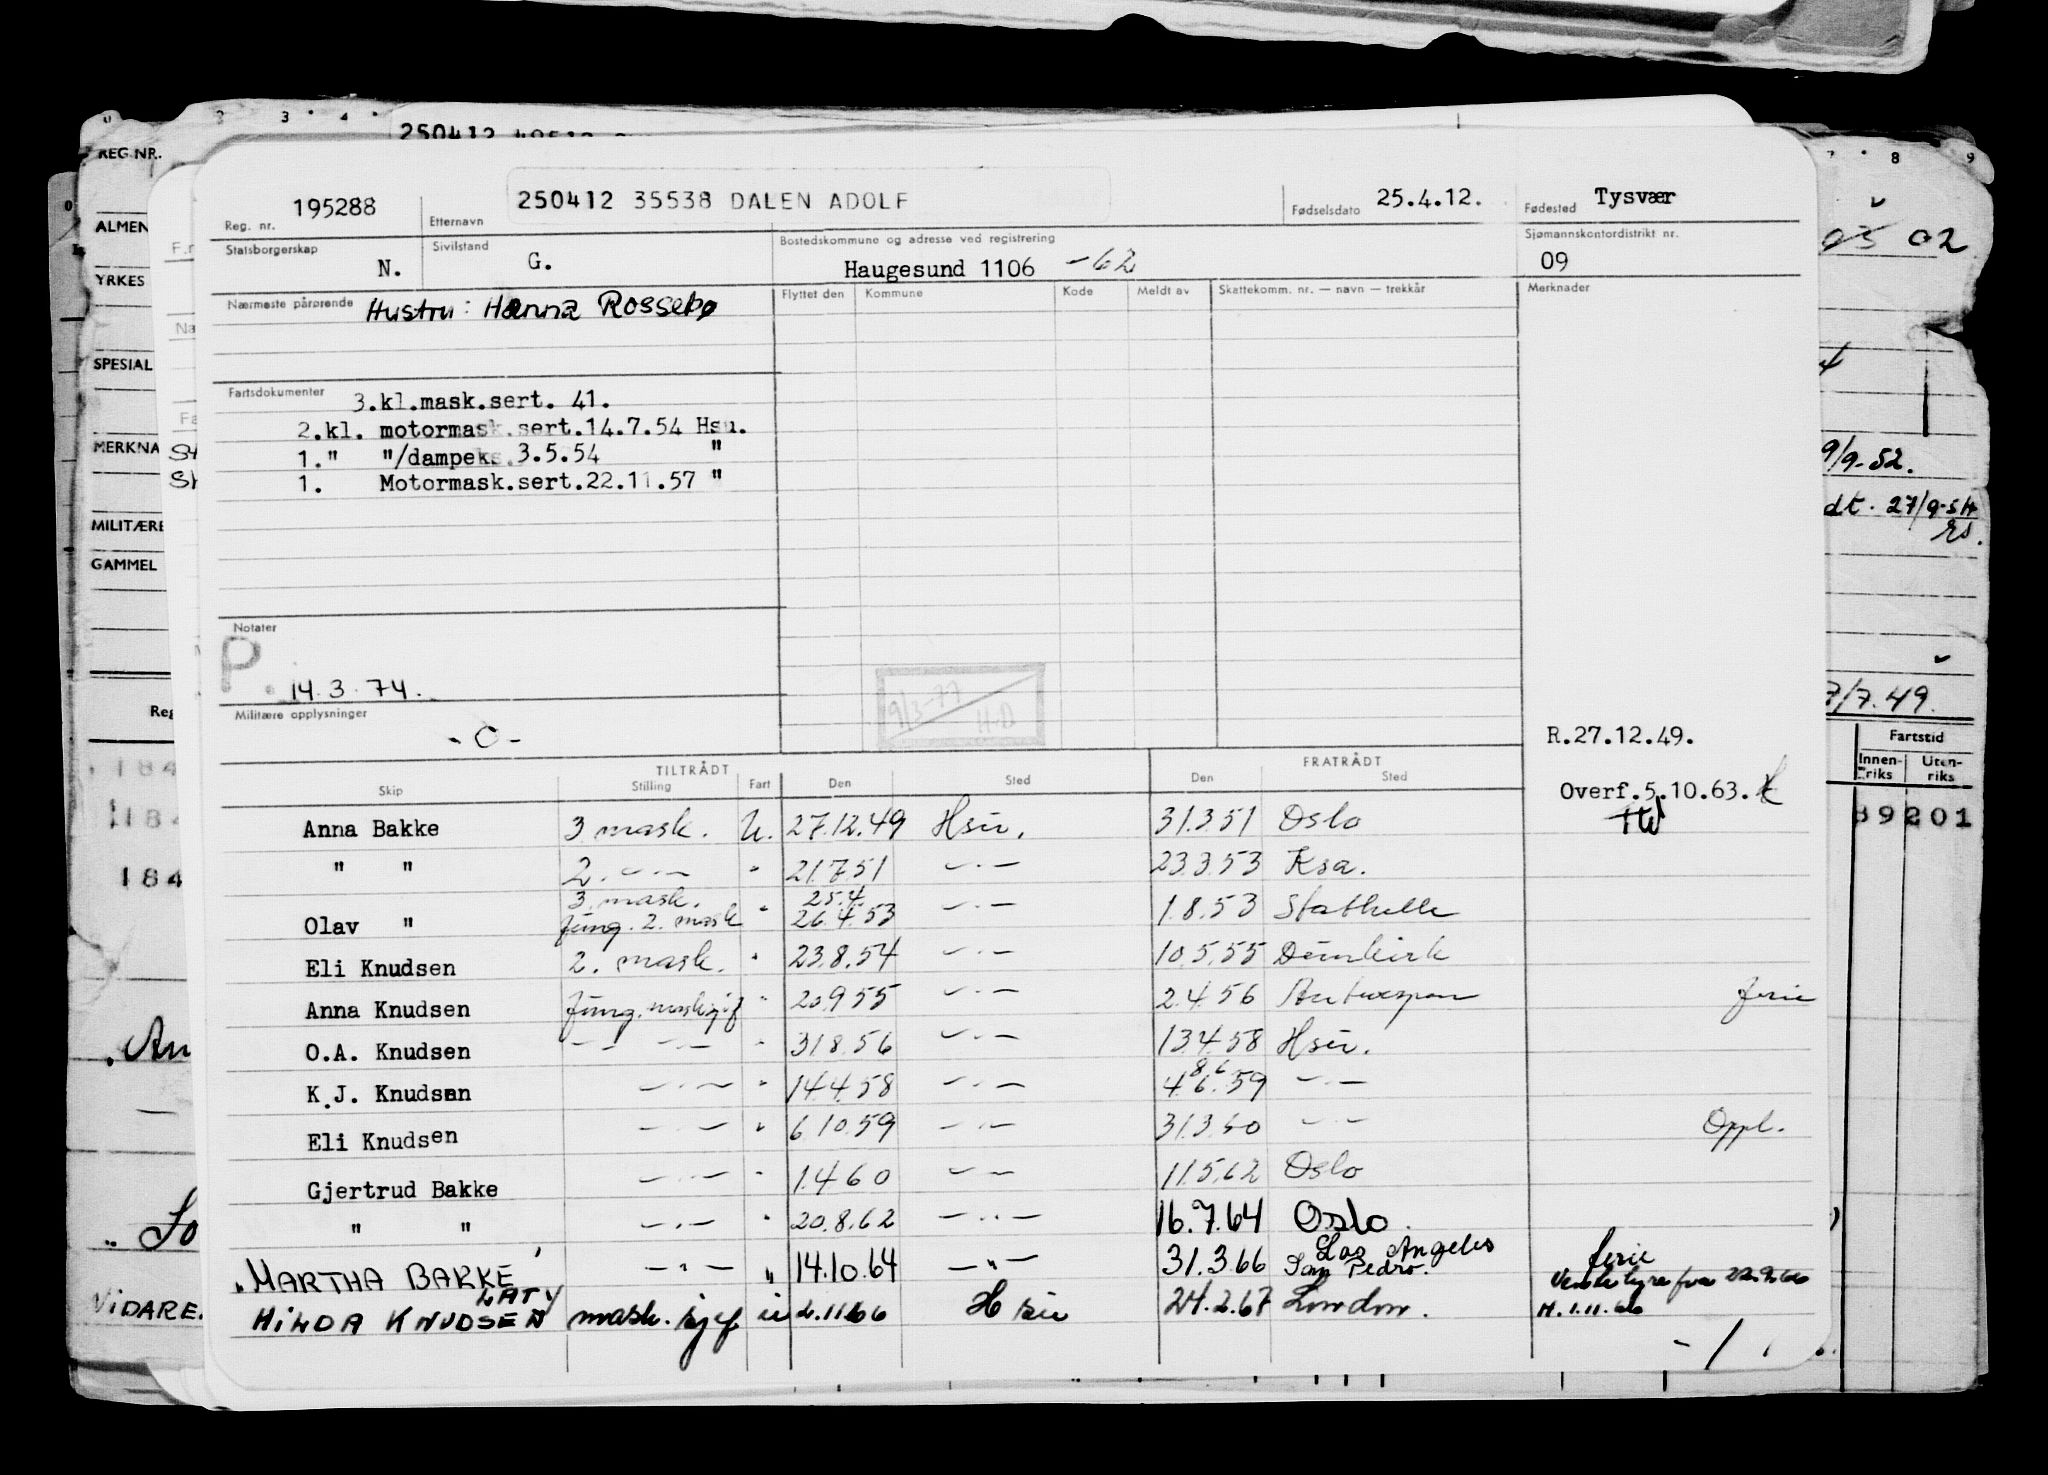 250412
REG.NR.
ALMEN
YRKES
SPESIAL
MERKNA
MILITÆRE
GAMMEL
195288
Reg. nr.
Etternavn
250412 35538 DALEN ADOLF
Fødselsdato 25.4.12.
Fødested Tysvær
Statsborgerskap N.
Sivilstand G.
Bostedskommune og adresse ved registrering
Haugesund 1106 -62
Sjømannskontordistrikt nr.
09
05 02
Nærmeste pårørende Hustru: Hanna Rossebø
Flyttet den Kommune Kode Meldt av Skattekomm. nr. — navn — trekkår Merknader
Fartsdokumenter 3.kl.mask.sert. 41.
2.kl. motormask.sert.14.7.54 Hsu.
1." "/dampeks.3.5.54 "
1. Motormask.sert.22.11.57 "
9/9-52.
dt. 27/9-54
Notater
P. 14.3.74.
Militære opplysninger
- O -
9/3-77
H.D
7/7.49.
R.27.12.49.
Overf.5.10.63.
Fartstid
Innen-riks Uten-riks
89201
TILTRÅDT FRATRÅDT
Skip Stilling Fart Den Sted Den Sted
Anna Bakke 3 mask. U. 27.12.49 Hsu. 31.3.51 Oslo
" " 2. -"- " 21.7.51 -"- 23.3.53 Ksa.
3. mask. 25.4
Olav " fung. 2. mask " 26.4.53 -"- 1.8.53 Stathelle
Eli Knudsen 2. mask. " 23.8.54 -"- 10.5.55 Dunkirk
Anna Knudsen fung. masksjef " 20.9.55 -"- 2.4.56 Antwerpen ferie
O.A. Knudsen -"- -"- " 31.8.56 -"- 13.4.58 Hsu.
8.6
K.J. Knudsen -"- " 14.4.58 -"- 4.6.59 -"-
Eli Knudsen -"- " 6.10.59 -"- 31.3.60 -"- Oppl.
Gjertrud Bakke -"- " 1.4.60 -"- 11.5.62 Oslo
" " -"- " 20.8.62 -"- 16.7.64 Oslo.
MARTHA BAKKE -"- " 14.10.64 -"- 31.3.66 Los Angeles San Pedro. ferie
HILDA KNUDSEN mask.sjef u 2.11.66 Hsu 24.2.67 London. H. 1.11.66
VIDARE.
-1